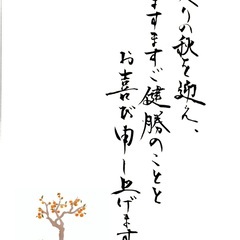 りの秋を迎え、
ますますご健勝のことと
お喜び申し上げます